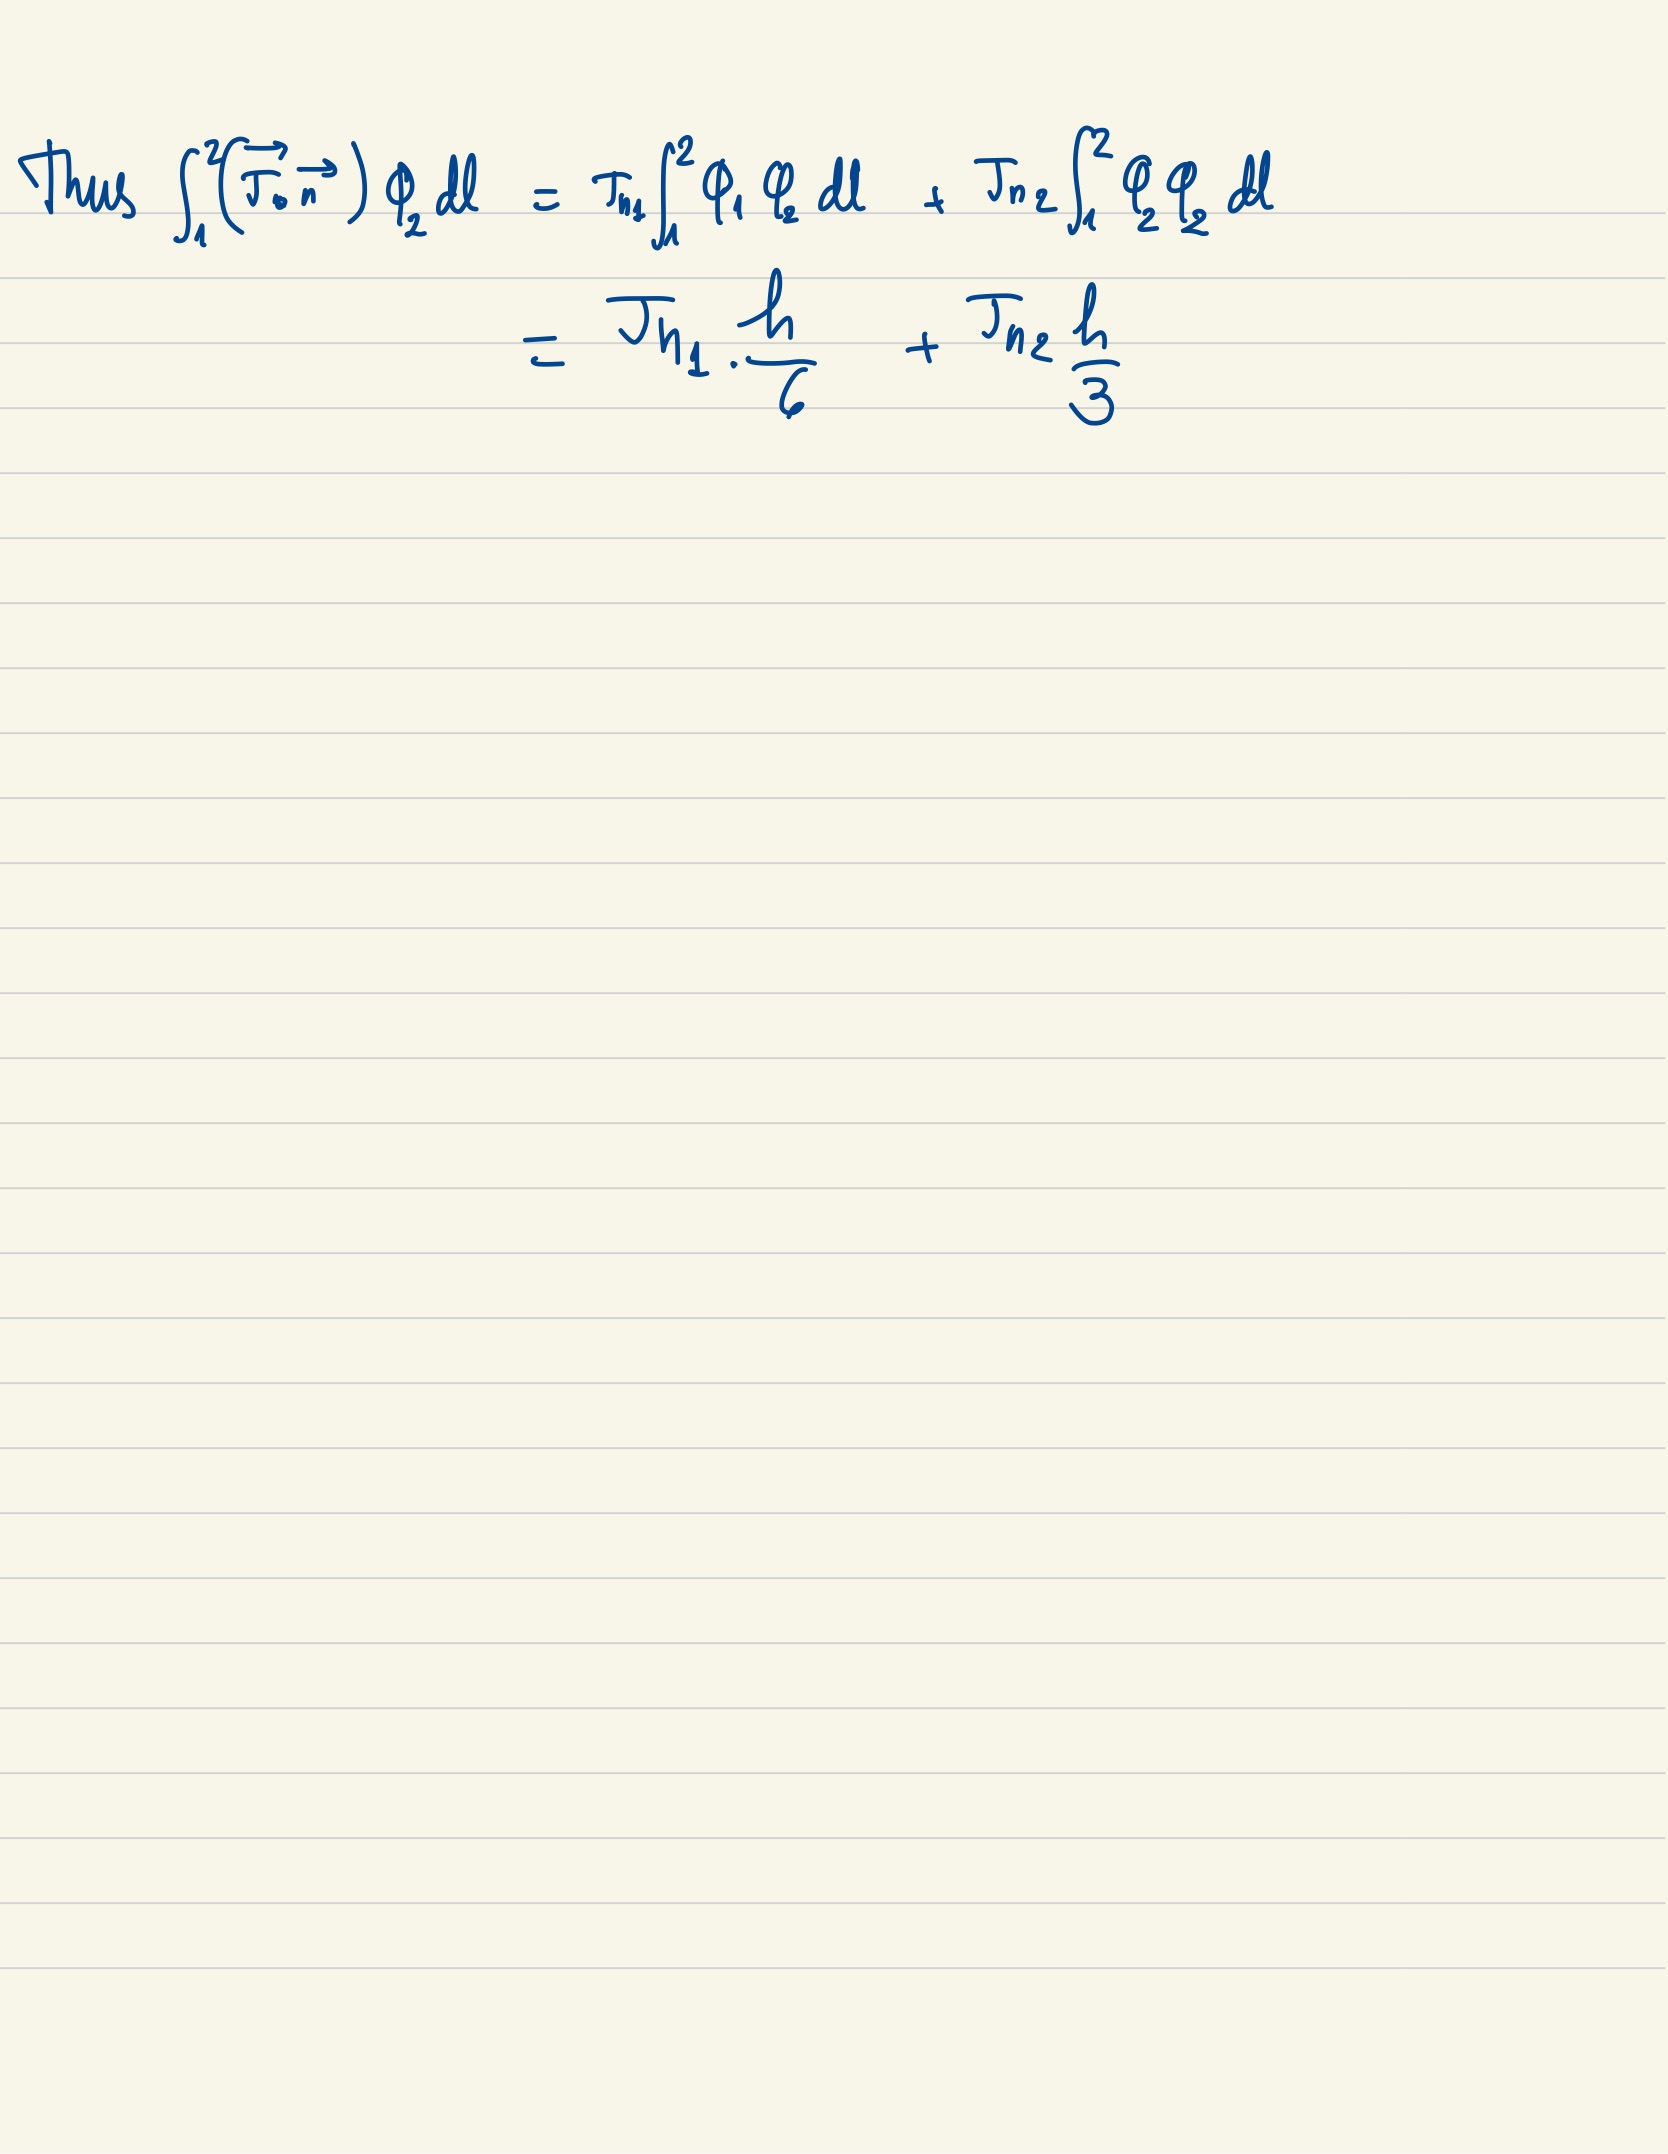 Thus ∫₁² (J⃗ · n⃗) φ₂ dl = Jn₁ ∫₁² φ₁ φ₂ dl + Jn₂ ∫₁² φ₂ φ₂ dl
= Jn₁ · h/6 + Jn₂ h/3